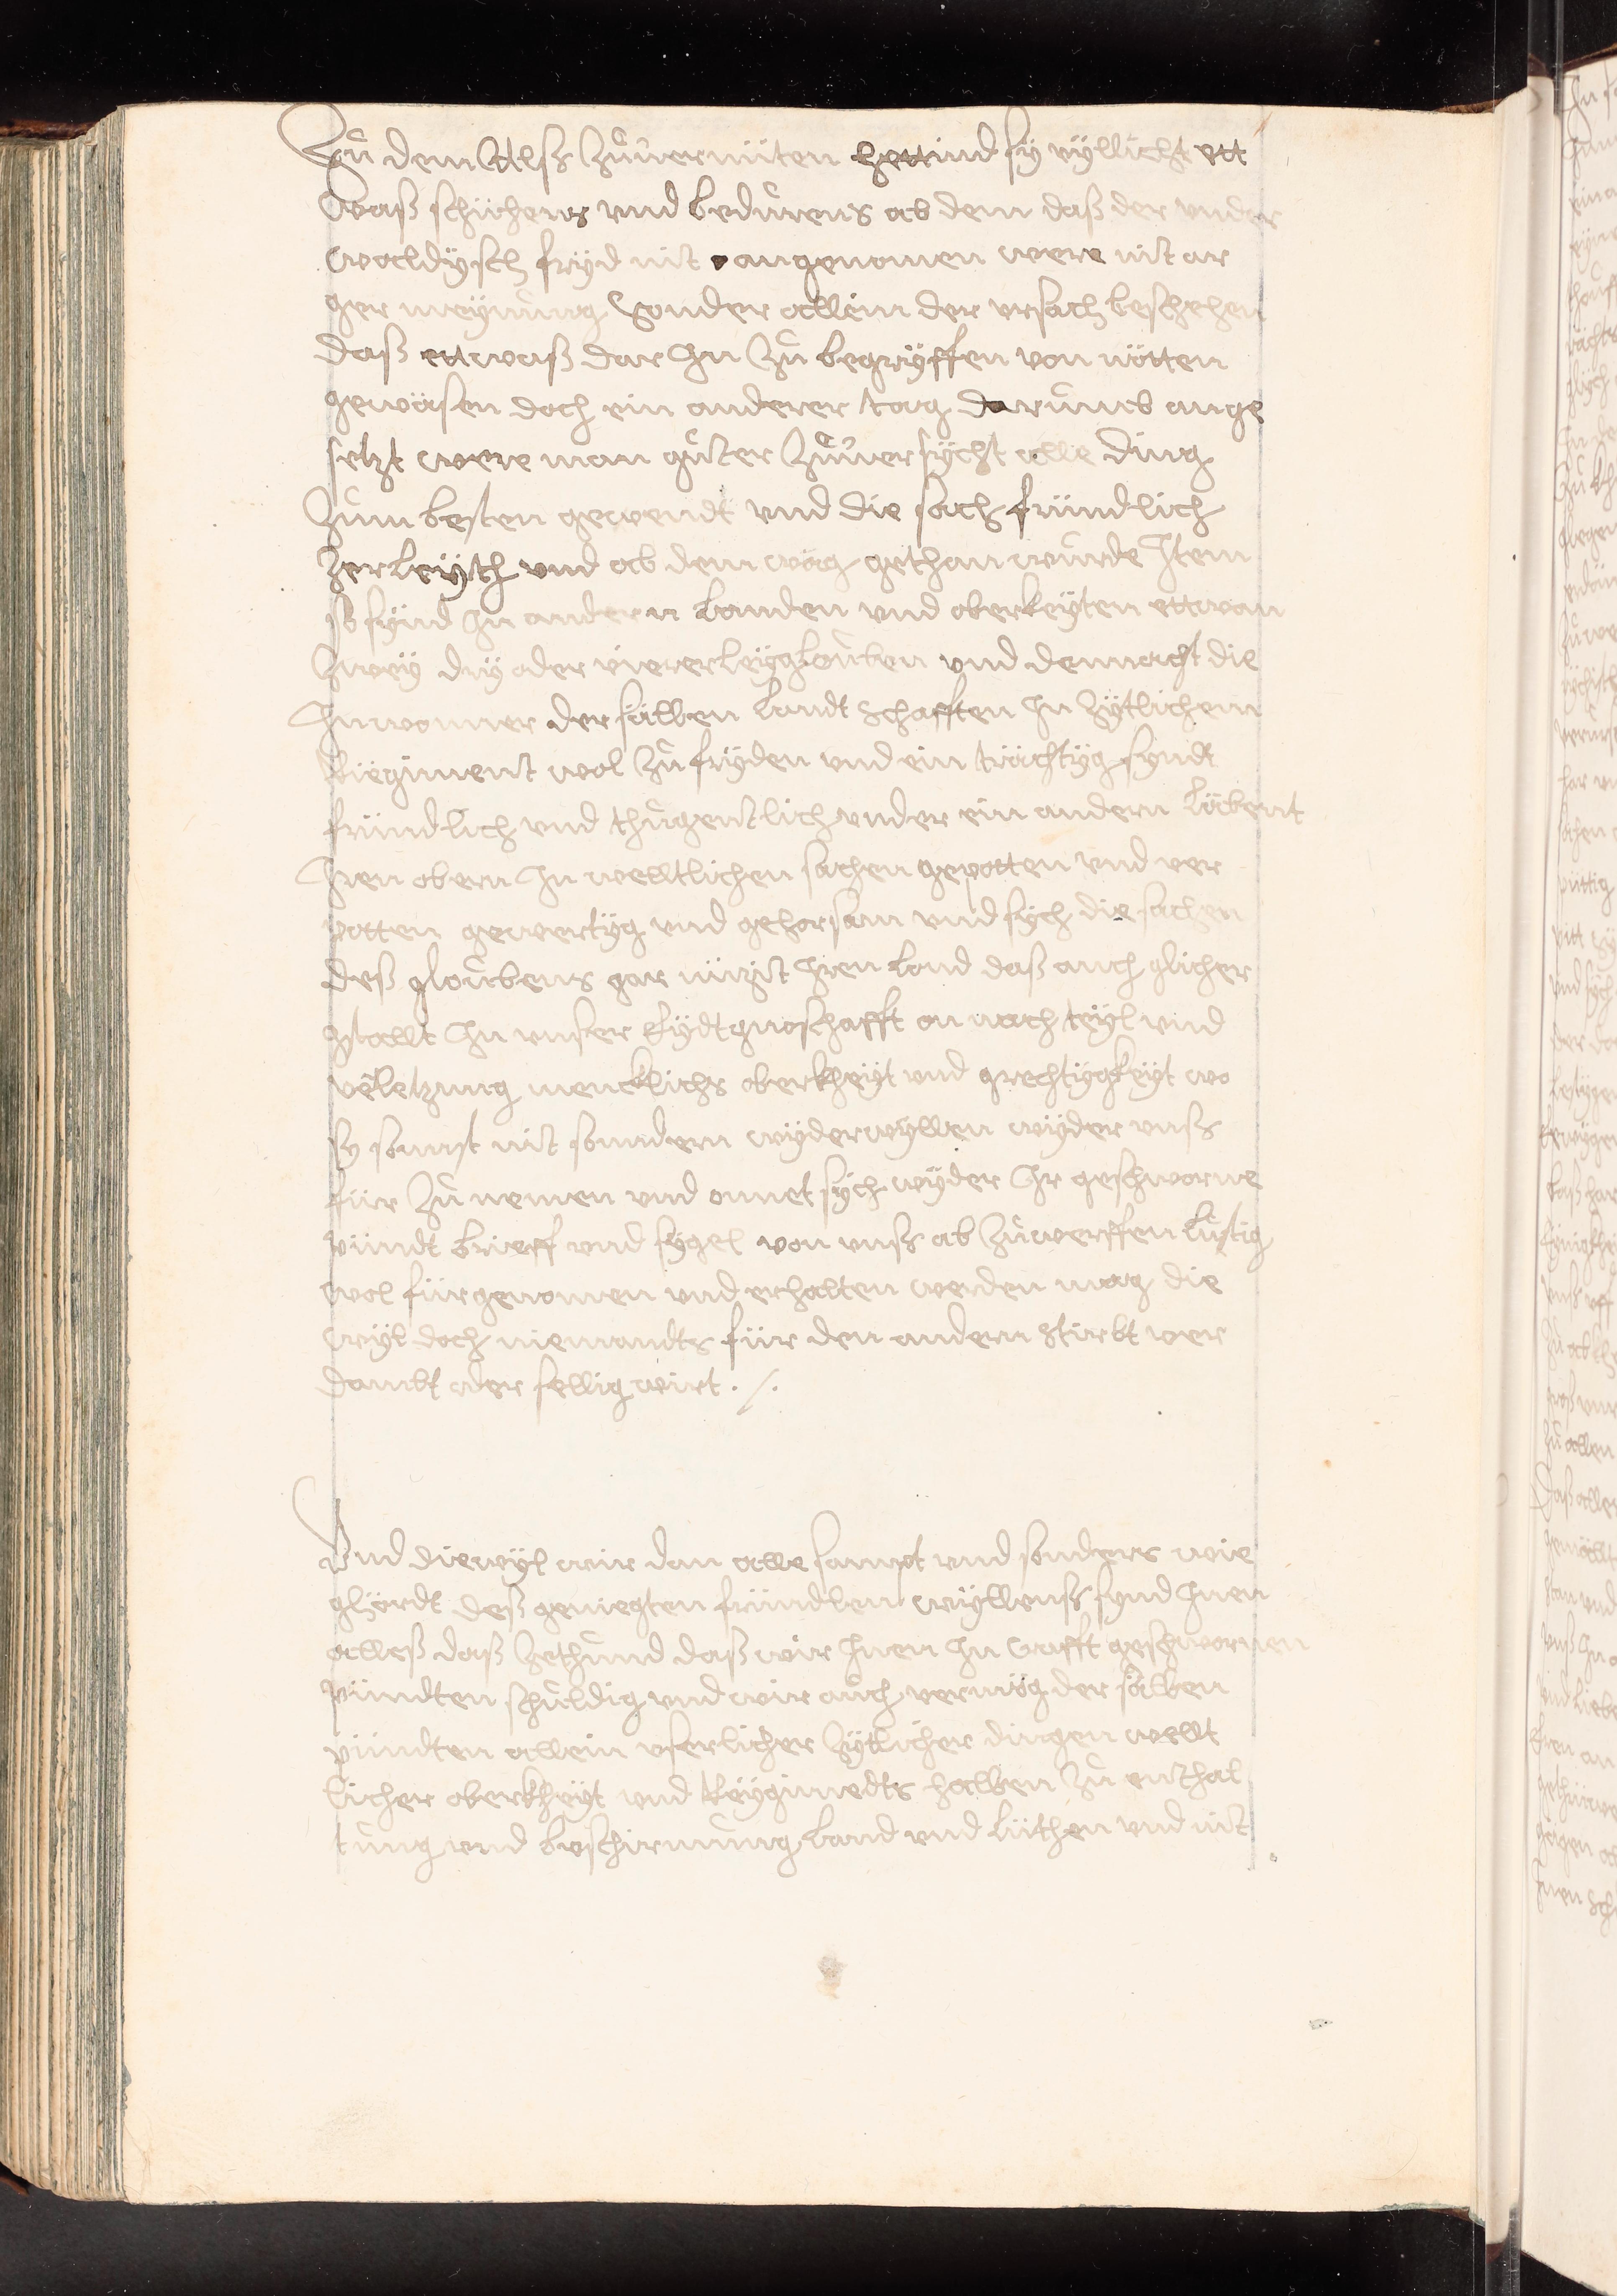 Zu dem Alß Zůuermüten hettind sy vyllicht ett
waß schüchens vnd bedurens ab dem daß der vnder
waldysch fryd nit angenomen were nit ar
ger meynung Sonder allein der vrsach beschehen
daß ettwaß dar In Zů begryffen von nötten
gewäsen doch ein anderer tag darumb ange
setzt were man gůter Zůuersycht alle ding
Zum besten gewendt vnd die sach fründlich
zerleyth vnd ab dem wäg gethan wurde Item
so synd In andern Landen vnd oberkeyten ettwan
Zwey dry oder viererley glouben vnd dennacht die
Inwonner der sälben Landtschafften In Zytlichem
Regiment wol Zů fryden vnd ein trächtyg syndt
fründlich vnd thugentlich vnder ein andern Läbent
Iren obern In welltlichen sachen gepotten vnd ver
potten gewertyg vnd gehorsam vnd sych die sachen
deß gloubens gar nüzit Iren Land daß auch glicher
gstallt In vnser Eydtgnoschafft on nach teyl vnd
veletzung mencklichs oberkheyt vnd grechtygkeyt wo
sy sonnst nit sonndern wyderwyllen wyder vnß
für Zů nemen vnd onnet sych wyder Ir geschworne
pündt brieff vnd sygel von vnß ab Zůwerffen Lustig
wol fürgenomen vnd erhalten werden mag die
wyl doch niemandts für den andern stirbt ver
dambt oder sellig wirt ./.
Vnd diewyl wir dan alle sampt vnd sonders wie
ghördt deß geniegten fründlen wyllenß synd Inen
alleß daß Zethund daß wir Inen In crafft geschwornen
pündten schuldig vnd wir auch vermög der sälben
pündten allein vserlicher Zytlicher dingen wellt
licher oberkheyt vnd Reygimedts halben Zů enthal
tung vnd beschirmung Land vnd Lüthen vnd nit